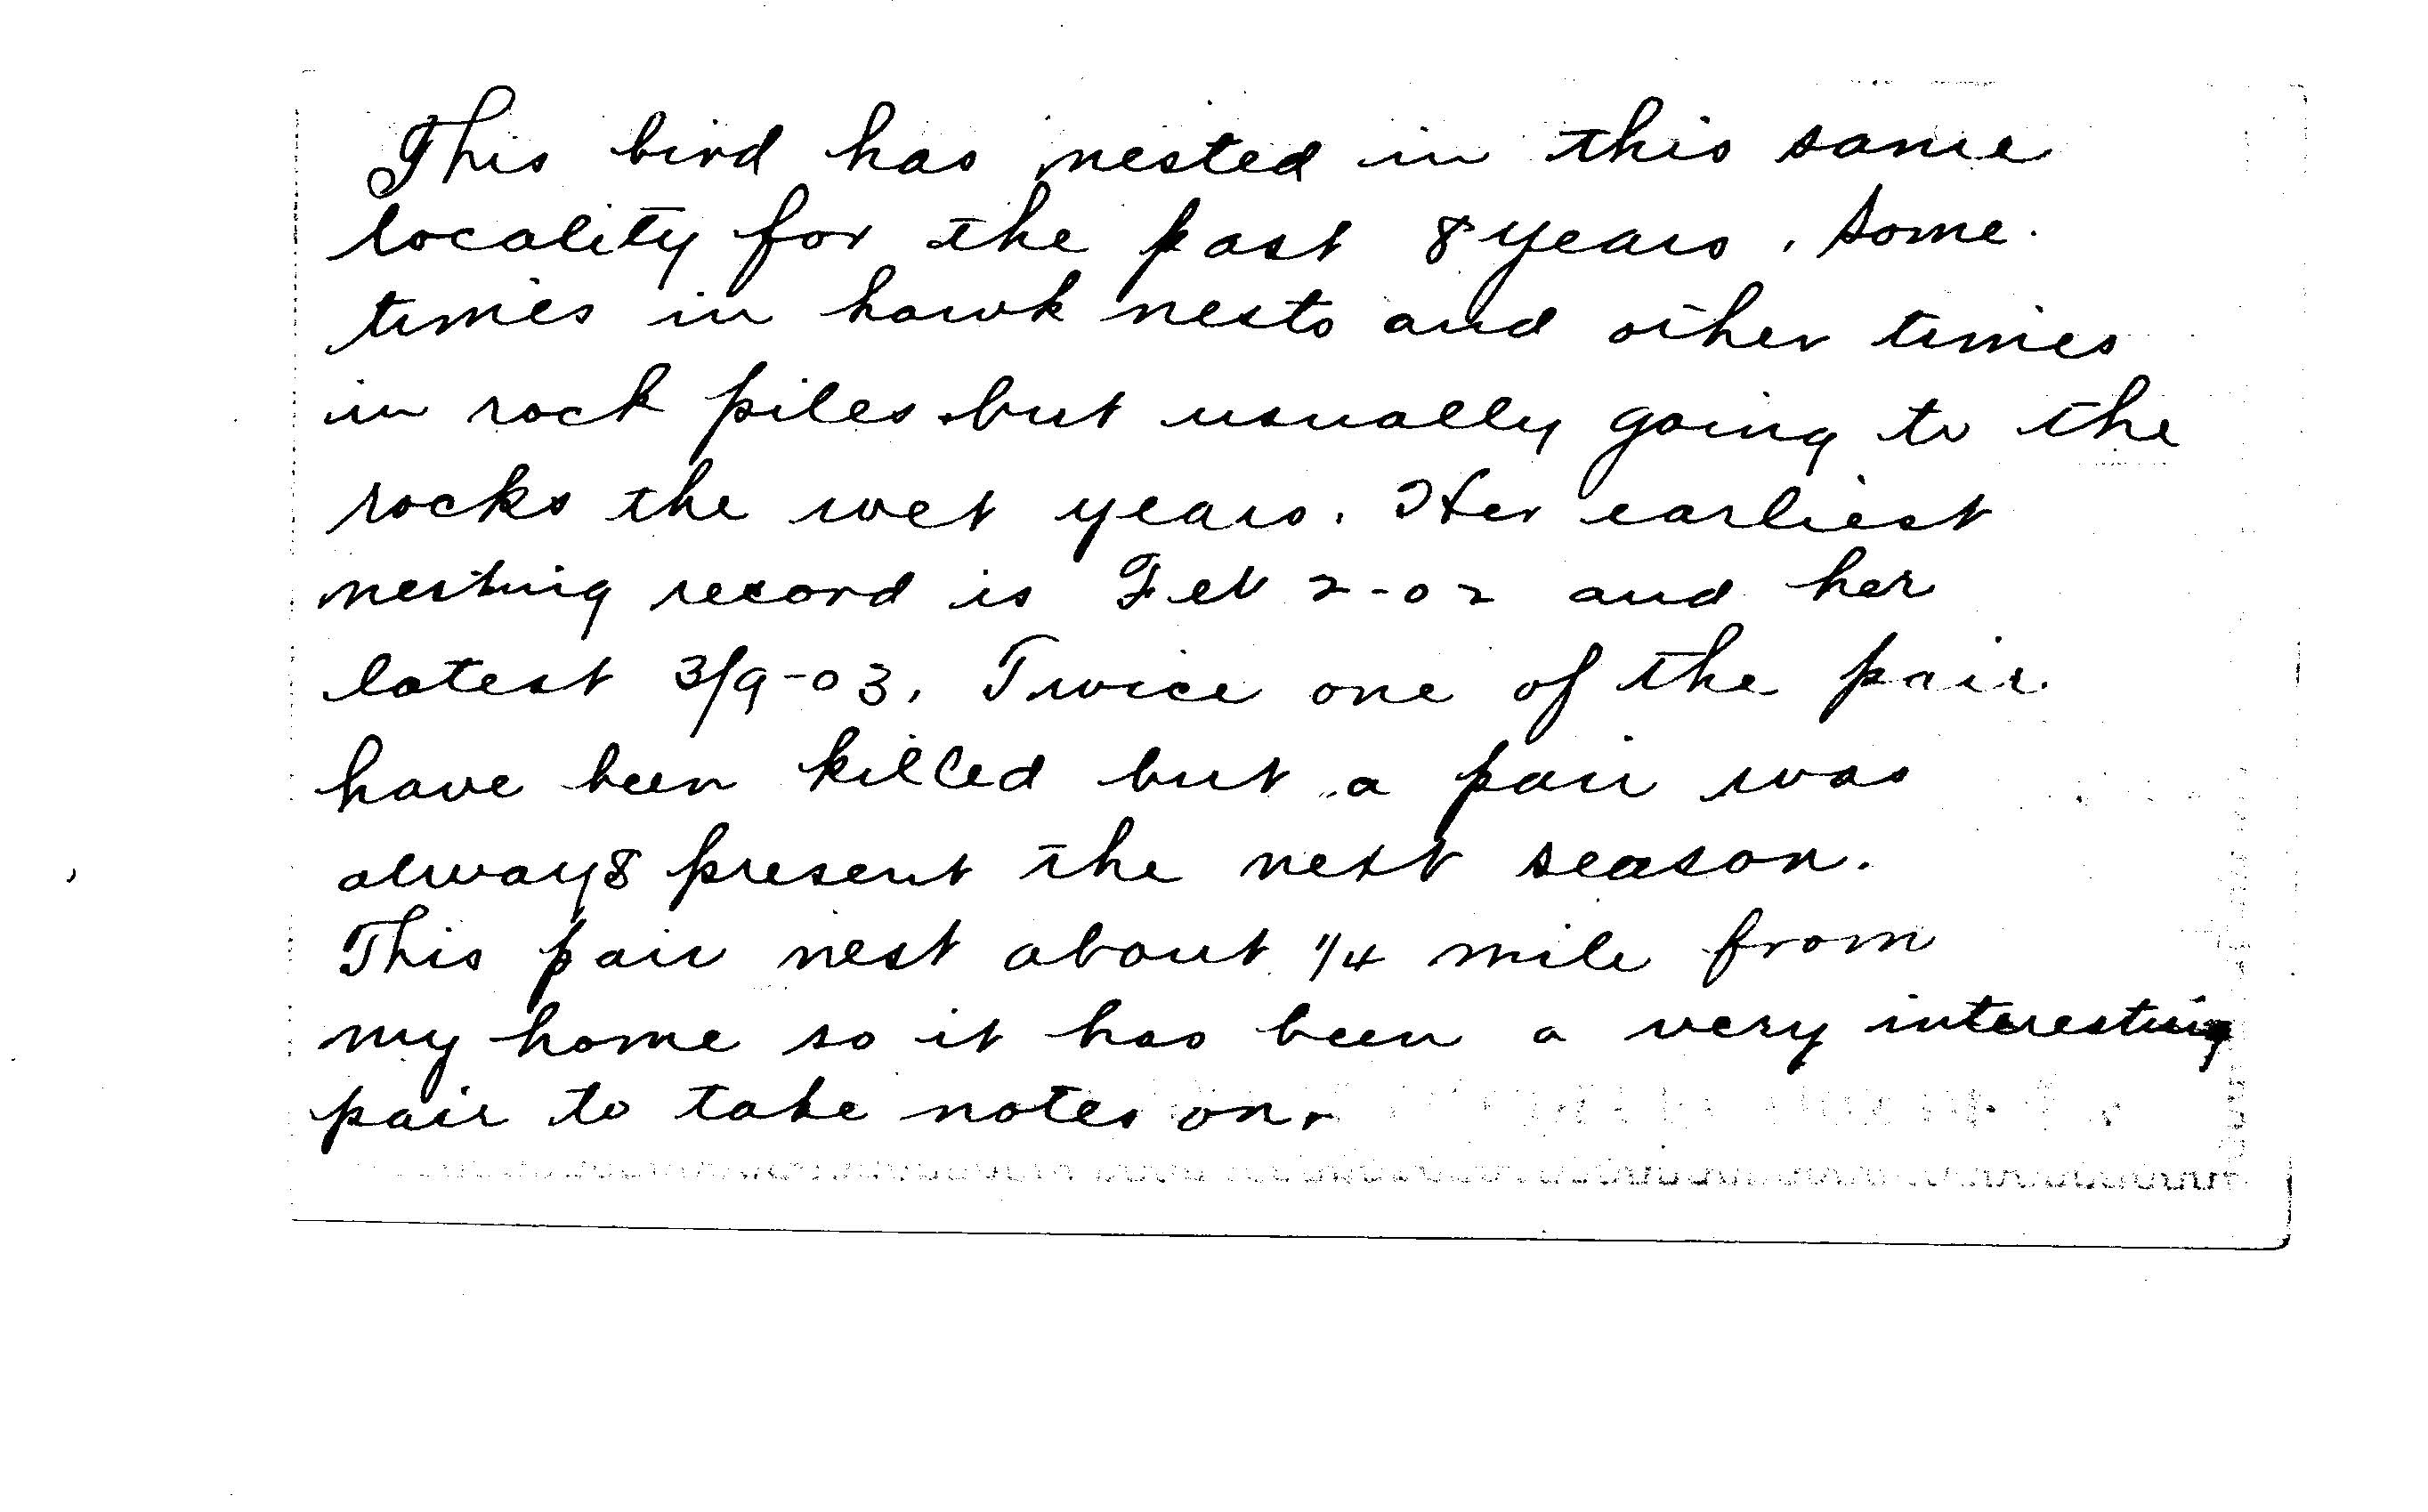 This bird has nested in this same
locality for the past 8 years. Some
times in hawk nests and other times
in rock piles but usually going to the
rocks the wet years. Her earliest
nesting record is Feb 2-02 and her
latest 3/9-03. Twice one of the pair
have been killed but a pair was
always present the next season.
This pair nest about 1/4 mile from
my home so it has been a very interesting
pair to take notes on.